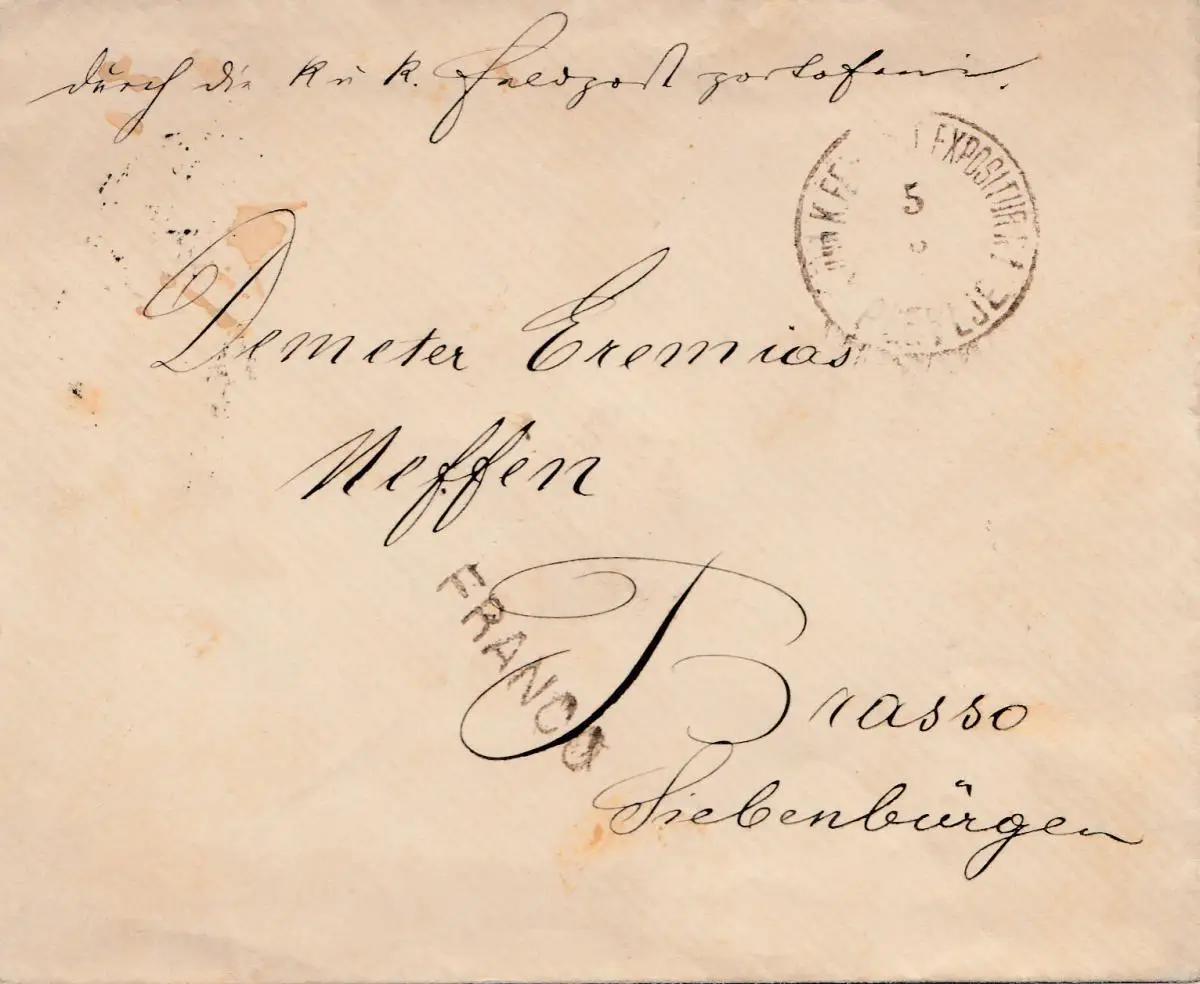 durch die k u k. Feldpost portofrei.
K. EXPOSITUR
5
PLEVLJE
Demeter Eremias
Neffen
FRANCO
Brasso
Siebenbürgen